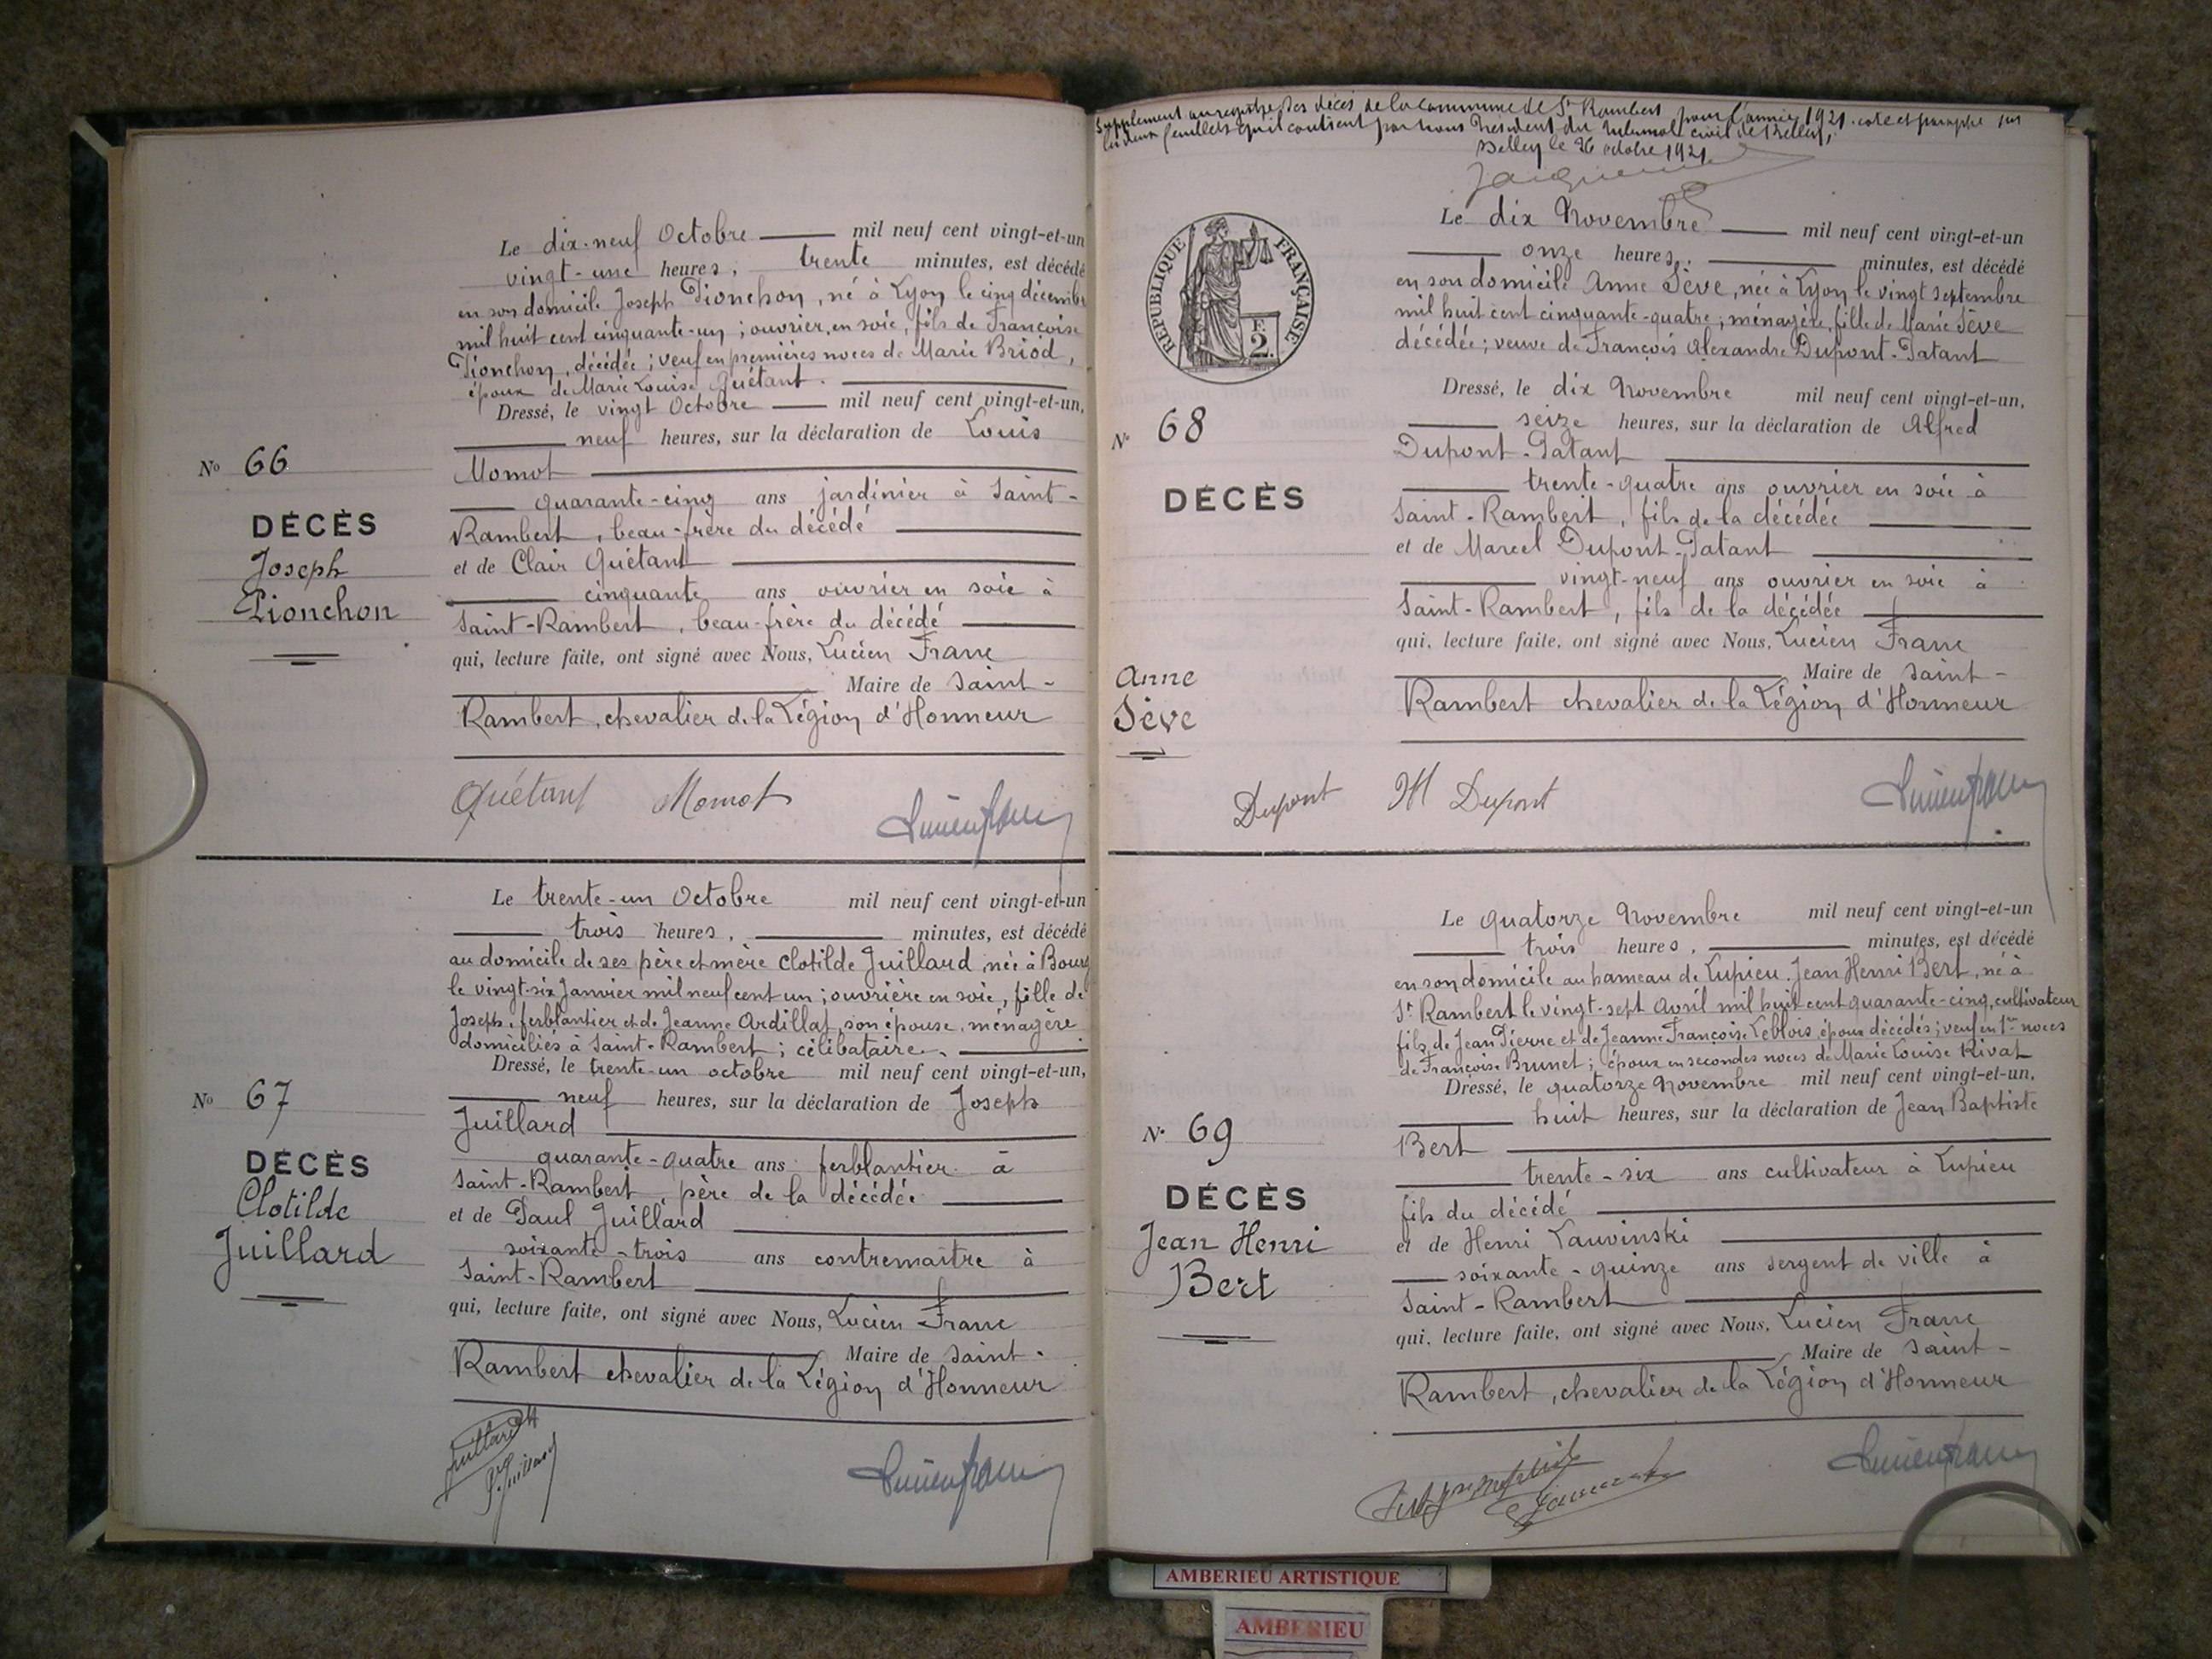 Le dix-neuf Octobre mil neuf cent vingt-et-un
vingt-une heures, trente minutes, est décédé
en son domicile Joseph Pionchon, né à Lyon le cinq décembre
mil huit cent cinquante-un ; ouvrier en soie, fils de Françoise
Pionchon, décédée ; veuf en premières noces de Marie Briod,
époux de Marie Louise Quétant.
Dressé, le vingt Octobre mil neuf cent vingt-et-un,
neuf heures, sur la déclaration de Louis
No 66
Momot
quarante-cinq ans jardinier à Saint-
DÉCÈS
Rambert, beau-frère du décédé
Joseph
et de Clair Quétant
Pionchon
cinquante ans ouvrier en soie à
Saint-Rambert, beau-frère du décédé
qui, lecture faite, ont signé avec Nous, Lucien Franc
Maire de Saint-
Rambert, chevalier de la Légion d'Honneur
Quétant Momot Lucien Franc
Le trente-un Octobre mil neuf cent vingt-et-un
trois heures, minutes, est décédé
au domicile de ses père et mère Clotilde Juillard, née à Bourg
le vingt-six Janvier mil neuf cent un ; ouvrière en soie, fille de
Joseph, ferblantier et de Jeanne Ardillat, son épouse, ménagère
domiciliés à Saint-Rambert ; célibataire.
Dressé, le trente-un octobre mil neuf cent vingt-et-un,
No 67
neuf heures, sur la déclaration de Joseph
Juillard
DÉCÈS
quarante-quatre ans ferblantier à
Clotilde
Saint-Rambert, père de la décédée
Juillard
et de Paul Juillard
soixante-trois ans contremaître à
Saint-Rambert
qui, lecture faite, ont signé avec Nous, Lucien Franc
Maire de Saint-
Rambert chevalier de la Légion d'Honneur
Juillard
P. Juillard
Lucien Franc
Supplément au registre des décès de la commune de St Rambert pour l'année 1921. coté et paraphé sur
les deux feuillets qu'il contient par nous Président du tribunal civil de Belley,
Belley le 26 octobre 1921
RÉPUBLIQUE FRANÇAISE
2 F.
Le dix Novembre mil neuf cent vingt-et-un
onze heures, minutes, est décédé
en son domicile Anne Sève, née à Lyon le vingt septembre
mil huit cent cinquante-quatre ; ménagère, fille de Marie Sève
décédée ; veuve de François Alexandre Dupont-Patant
Dressé, le dix Novembre mil neuf cent vingt-et-un,
No 68
seize heures, sur la déclaration de Alfred
Dupont-Patant
DÉCÈS
trente-quatre ans ouvrier en soie à
Saint-Rambert, fils de la décédée
et de Marcel Dupont-Patant
vingt-neuf ans ouvrier en soie à
Saint-Rambert, fils de la décédée
qui, lecture faite, ont signé avec Nous, Lucien Franc
Anne
Maire de Saint-
Sève
Rambert chevalier de la Légion d'Honneur
Dupont M Dupont Lucien Franc
Le quatorze Novembre mil neuf cent vingt-et-un
trois heures, minutes, est décédé
en son domicile au hameau de Lupieu Jean Henri Bert, né à
St Rambert le vingt-sept Avril mil huit cent quarante-cinq, cultivateur
fils de Jean Pierre et de Jeanne Françoise Leblois, époux décédés ; veuf en 1res noces
de Françoise Brunet ; époux en secondes noces de Marie Louise Rivat
Dressé, le quatorze Novembre mil neuf cent vingt-et-un,
No 69
huit heures, sur la déclaration de Jean Baptiste
Bert
DÉCÈS
trente-six ans cultivateur à Lupieu
fils du décédé
Jean Henri
et de Henri Lauvinski
Bert
soixante-quinze ans sergent de ville à
Saint-Rambert
qui, lecture faite, ont signé avec Nous, Lucien Franc
Maire de Saint-
Rambert, chevalier de la Légion d'Honneur
Lucien Franc
AMBERIEU ARTISTIQUE
AMBERIEU